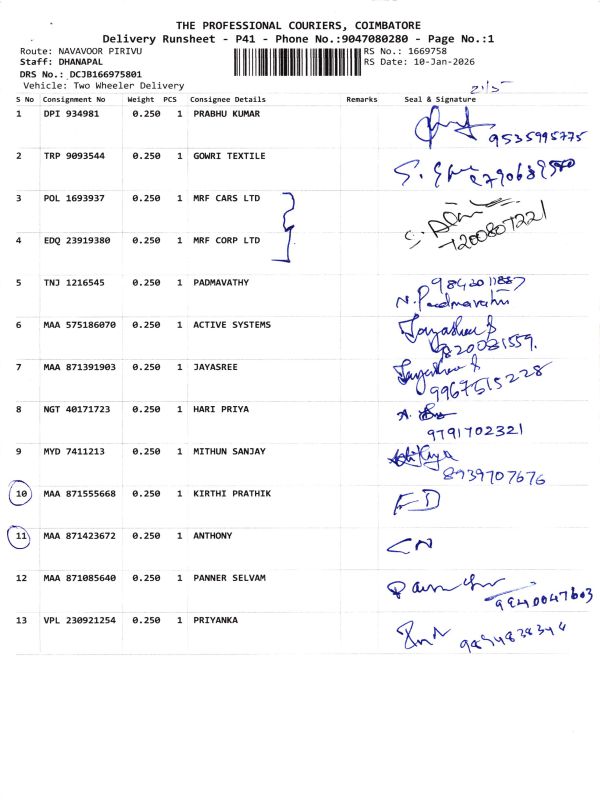 THE PROFESSIONAL COURIERS, COIMBATORE
Delivery Runsheet - P41 - Phone No.:9047080280 - Page No.:1
Route: NAVAVOOR PIRIVU RS No.: 1669758
Staff: DHANAPAL RS Date: 10-Jan-2026
DRS No.: DCJB166975801
Vehicle: Two Wheeler Delivery
S No Consignment No Weight PCS Consignee Details Remarks Seal & Signature
1 DPI 934981 0.250 1 PRABHU KUMAR
9535995775
2 TRP 9093544 0.250 1 GOWRI TEXTILE
3 POL 1693937 0.250 1 MRF CARS LTD
7200807221
4 EDQ 23919380 0.250 1 MRF CORP LTD
5 TNJ 1216545 0.250 1 PADMAVATHY
N. Padmavathi
6 MAA 575186070 0.250 1 ACTIVE SYSTEMS
7 MAA 871391903 0.250 1 JAYASREE
9967515228
8 NGT 40171723 0.250 1 HARI PRIYA
9791702321
9 MYD 7411213 0.250 1 MITHUN SANJAY
8939707676
10 MAA 871555668 0.250 1 KIRTHI PRATHIK
FD
11 MAA 871423672 0.250 1 ANTHONY
CN
12 MAA 871085640 0.250 1 PANNER SELVAM
9940047603
13 VPL 230921254 0.250 1 PRIYANKA